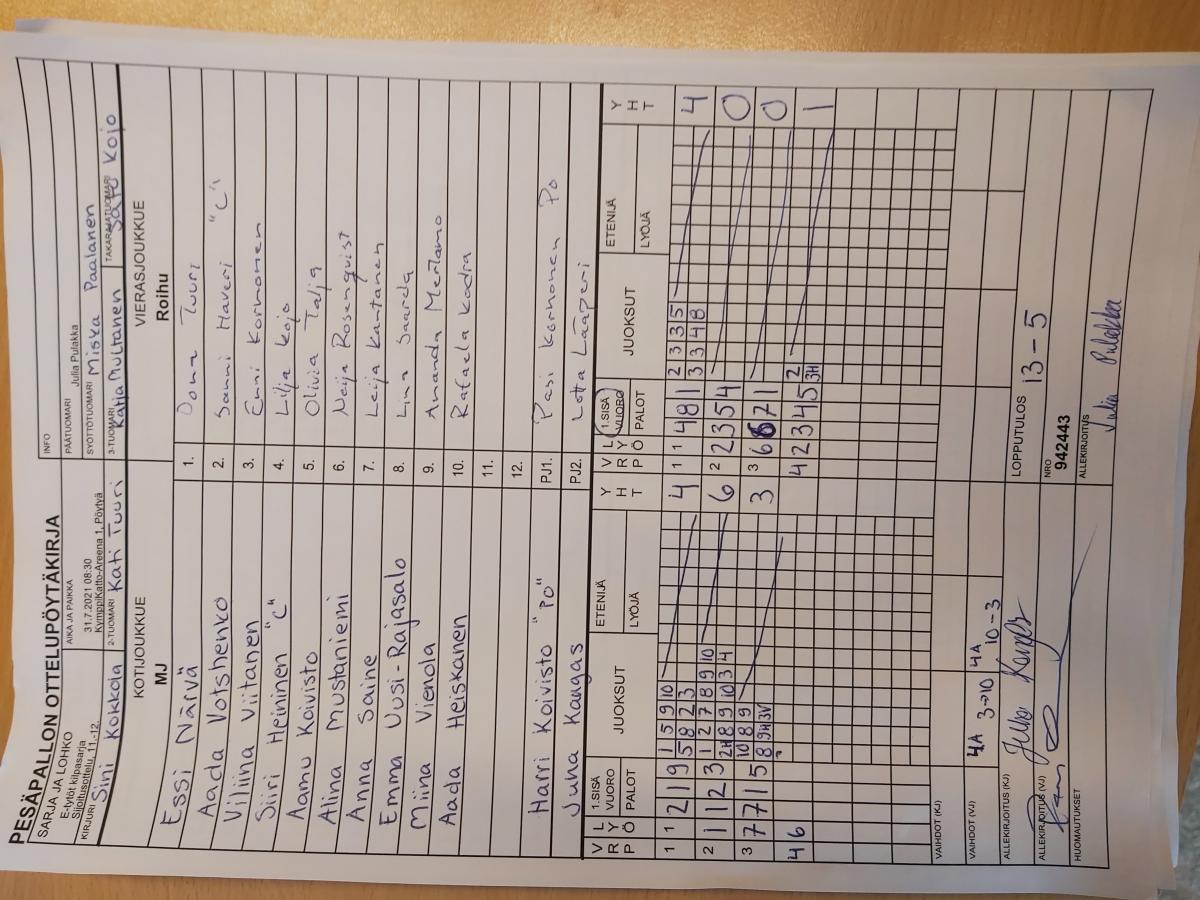 PESÄPALLON OTTELUPÖYTÄKIRJA
INFO
SARJA JA LOHKO
E-tytöt kilpasarja
Sijoitusottelu, 11.-12.
AIKA JA PAIKKA
31.7.2021 08:30
KymppiKatto-Areena 1, Pöytyä
PÄÄTUOMARI Julia Pulakka
SYÖTTÖTUOMARI Miska Paalanen
KIRJURI Sini Kokkola
2-TUOMARI Kati Tuuri
3-TUOMARI Katja Multanen
TAKARAJATUOMARI Satu Kojo
KOTIJOUKKUE
MJ
VIERASJOUKKUE
Roihu
Essi Närvä 1. Oona Tuuri
Aada Votshenko 2. Sanni Haveri "C"
Viliina Viitanen 3. Enni Kormonen
Siiri Heininen "C" 4. Lilja Kojo
Aamu Koivisto 5. Olivia Talja
Alina Mustaniemi 6. Neija Rosenqvist
Anna Saine 7. Leija Kantanen
Emma Uusi-Rajasalo 8. Linna Saarela
Miina Vienola 9. Amanda Mertamo
Aada Heiskanen 10. Rafaela Kadra
11.
12.
Harri Koivisto "PO" PJ1. Pasi Kormonen PO
Juha Kangas PJ2. Lotta Lääperi
V R P L Y Ö 1.SISÄ VUORO PALOT JUOKSUT ETENIJÄ LYÖJÄ Y H T V R P L Y Ö 1.SISÄ VUORO PALOT JUOKSUT ETENIJÄ LYÖJÄ Y H T
1 1 2 1 9 1 5 9 10 4 1 1 4 8 1 2 3 3 5 4
5 8 2 3 3 3 4 8
2 1 1 2 3 1 2 7 8 9 10 6 2 2 3 5 4 0
2H 8 9 10 3 4
3 7 7 1 5 10 8 9 3 3 6 6 7 1 0
8 9H 3V
4 6 7 4 2 3 4 5 2 1
3H
VAIHDOT (KJ)
VAIHDOT (VJ) 4A 3→10 4A 10-3
ALLEKIRJOITUS (KJ) Juha Kangas
LOPPUTULOS 13 - 5
ALLEKIRJOITUS (VJ)
NRO
942443
HUOMAUTUKSET
ALLEKIRJOITUS
Julia Pulakka